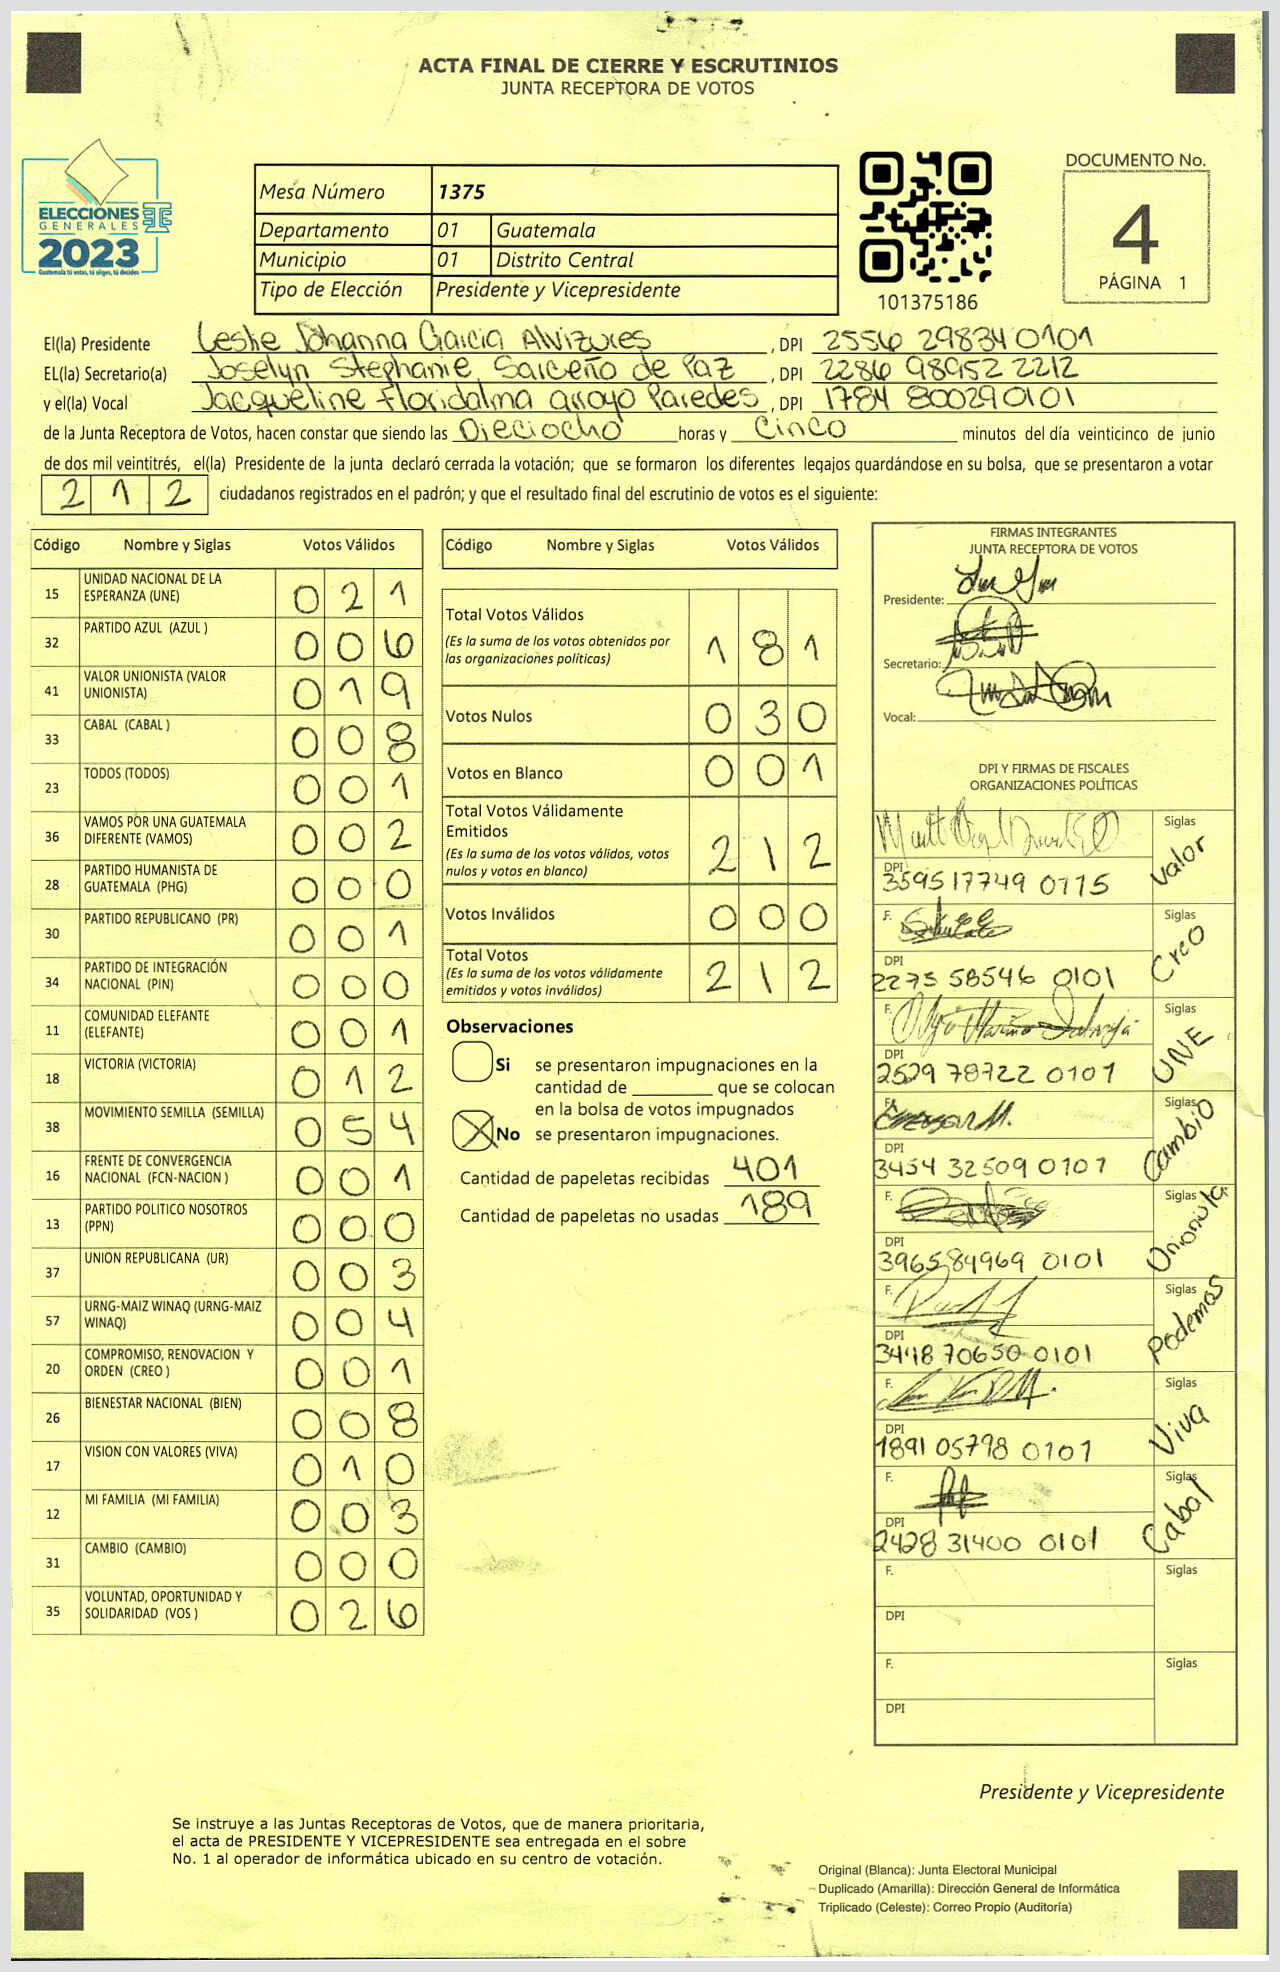 ACTA FINAL DE CIERRE Y ESCRUTINIOS
JUNTA RECEPTORA DE VOTOS
ELECCIONES
GENERALES
2023
Guatemala tú votas, tú eliges, tú decides
Mesa Número 1375
Departamento 01 Guatemala
Municipio 01 Distrito Central
Tipo de Elección Presidente y Vicepresidente
101375186
DOCUMENTO No.
4
PÁGINA 1
El(la) Presidente Leslie Johanna Garcia Alvizures, DPI 2556 29834 0101
EL(la) Secretario(a) Joselyn Stephanie Sarceño de Paz, DPI 2286 98952 2212
y el(la) Vocal Jacqueline Floridalma arroyo Paredes, DPI 1784 80029 0101
de la Junta Receptora de Votos, hacen constar que siendo las Dieciocho horas y Cinco minutos del día veinticinco de junio
de dos mil veintitrés, el(la) Presidente de la junta declaró cerrada la votación; que se formaron los diferentes legajos guardándose en su bolsa, que se presentaron a votar
212 ciudadanos registrados en el padrón; y que el resultado final del escrutinio de votos es el siguiente:
Código Nombre y Siglas Votos Válidos
15 UNIDAD NACIONAL DE LA ESPERANZA (UNE) 021
32 PARTIDO AZUL (AZUL ) 006
41 VALOR UNIONISTA (VALOR UNIONISTA) 019
33 CABAL (CABAL ) 008
23 TODOS (TODOS) 001
36 VAMOS POR UNA GUATEMALA DIFERENTE (VAMOS) 002
28 PARTIDO HUMANISTA DE GUATEMALA (PHG) 000
30 PARTIDO REPUBLICANO (PR) 001
34 PARTIDO DE INTEGRACIÓN NACIONAL (PIN) 000
11 COMUNIDAD ELEFANTE (ELEFANTE) 001
18 VICTORIA (VICTORIA) 012
38 MOVIMIENTO SEMILLA (SEMILLA) 054
16 FRENTE DE CONVERGENCIA NACIONAL (FCN-NACION ) 001
13 PARTIDO POLITICO NOSOTROS (PPN) 000
37 UNION REPUBLICANA (UR) 003
57 URNG-MAIZ WINAQ (URNG-MAIZ WINAQ) 004
20 COMPROMISO, RENOVACION Y ORDEN (CREO ) 001
26 BIENESTAR NACIONAL (BIEN) 008
17 VISION CON VALORES (VIVA) 010
12 MI FAMILIA (MI FAMILIA) 003
31 CAMBIO (CAMBIO) 000
35 VOLUNTAD, OPORTUNIDAD Y SOLIDARIDAD (VOS ) 026
Código Nombre y Siglas Votos Válidos
Total Votos Válidos
(Es la suma de los votos obtenidos por las organizaciones políticas) 181
Votos Nulos 030
Votos en Blanco 001
Total Votos Válidamente Emitidos
(Es la suma de los votos válidos, votos nulos y votos en blanco) 212
Votos Inválidos 000
Total Votos
(Es la suma de los votos válidamente emitidos y votos inválidos) 212
Observaciones
Si se presentaron impugnaciones en la
cantidad de ________ que se colocan
en la bolsa de votos impugnados
No se presentaron impugnaciones.
Cantidad de papeletas recibidas 401
Cantidad de papeletas no usadas 189
FIRMAS INTEGRANTES
JUNTA RECEPTORA DE VOTOS
Presidente:
Secretario:
Vocal:
DPI Y FIRMAS DE FISCALES
ORGANIZACIONES POLÍTICAS
Siglas Valor
DPI 3595 17749 0115
F. Siglas Creo
DPI 2275 58546 0101
F. Siglas UNE
DPI 2529 78722 0101
F. Siglas Cambio
DPI 3454 32509 0101
F. Siglas Unionista
DPI 3965 84969 0101
F. Siglas Podemos
DPI 3448 70650 0101
F. Siglas Viva
DPI 1891 05798 0101
F. Siglas Cabal
DPI 2428 31400 0101
F. Siglas
DPI
F. Siglas
DPI
Presidente y Vicepresidente
Se instruye a las Juntas Receptoras de Votos, que de manera prioritaria,
el acta de PRESIDENTE Y VICEPRESIDENTE sea entregada en el sobre
No. 1 al operador de informática ubicado en su centro de votación.
Original (Blanca): Junta Electoral Municipal
Duplicado (Amarilla): Dirección General de Informática
Triplicado (Celeste): Correo Propio (Auditoría)